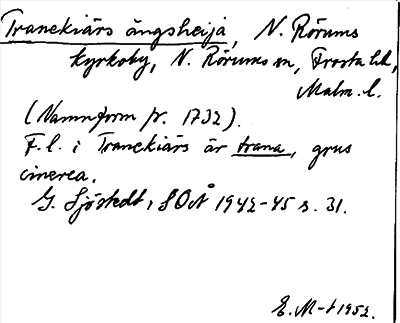 Tranekiärs ängsheija, N. Rörums
kyrkoby, N. Rörums sn, Frosta hd,
Malm. l.
(Namnform fr. 1732).
F.l. i Tranekiärs är trana, grus
cinerea.
G. Sjöstedt, SOÅ 1942-45 s. 31.
E. M-t 1952.